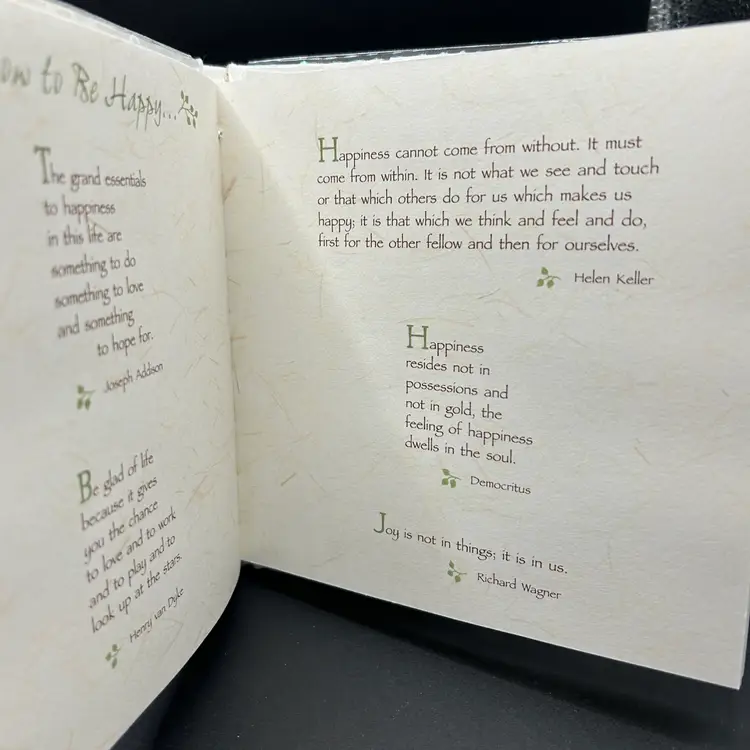 ow to Be Happy...
The grand essentials
to happiness
in this life are
something to do
something to love
and something
to hope for.
Joseph Addison
Be glad of life
because it gives
you the chance
to love and to work
and to play and to
look up at the stars.
Henry van Dyke
Happiness cannot come from without. It must
come from within. It is not what we see and touch
or that which others do for us which makes us
happy; it is that which we think and feel and do,
first for the other fellow and then for ourselves.
Helen Keller
Happiness
resides not in
possessions and
not in gold, the
feeling of happiness
dwells in the soul.
Democritus
Joy is not in things; it is in us.
Richard Wagner